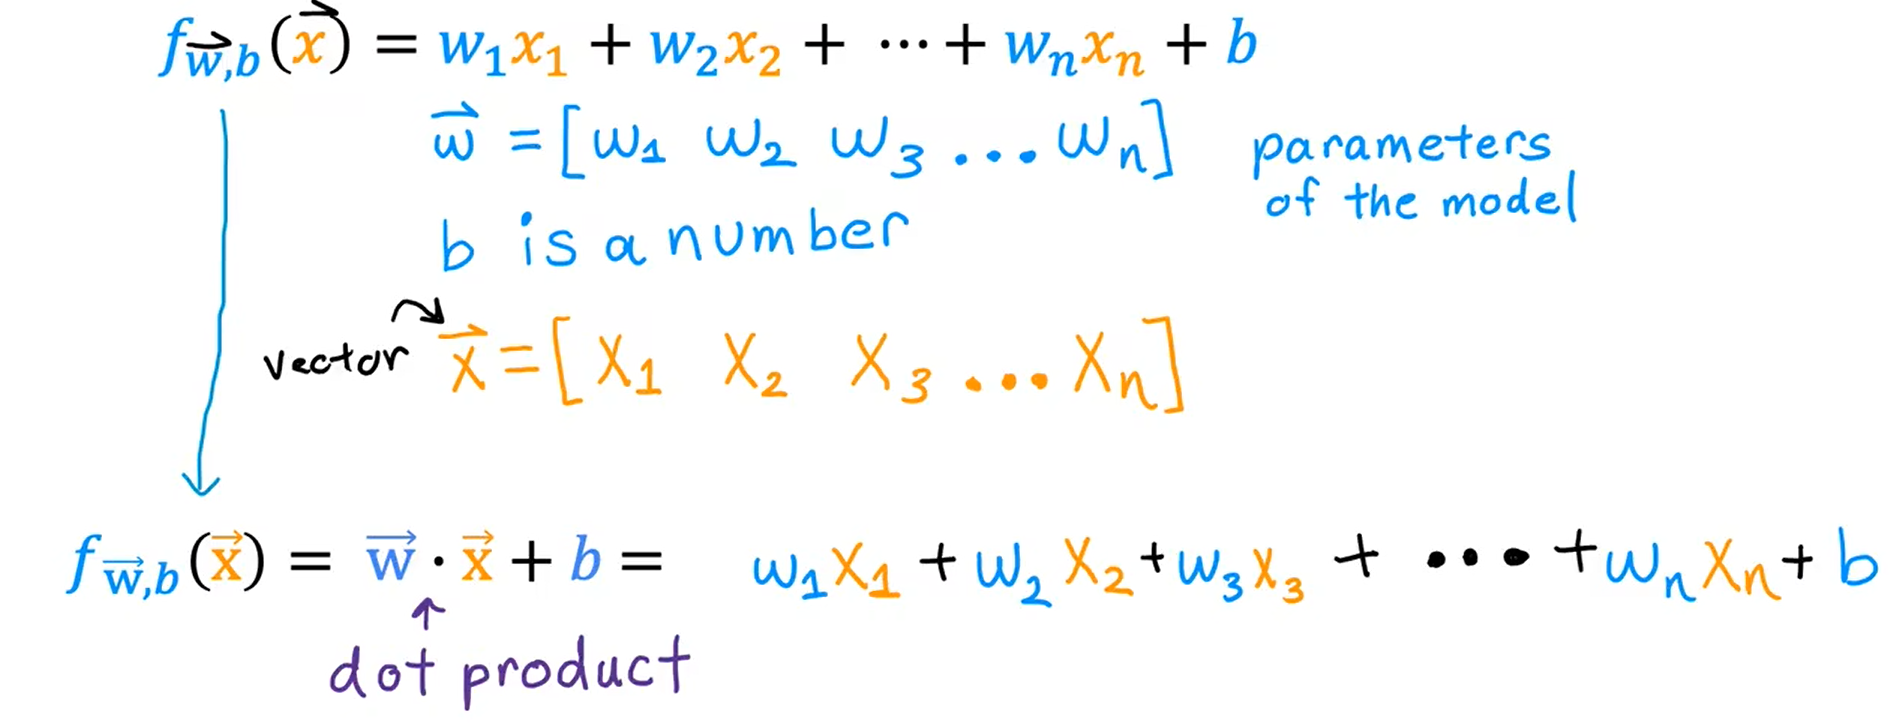 f w⃗,b (x⃗) = w₁x₁ + w₂x₂ + ⋯ + wₙxₙ + b
w⃗ = [w₁ w₂ w₃ ... wₙ] parameters
of the model
b is a number
vector x⃗ = [x₁ x₂ x₃ ... xₙ]
f w⃗,b (x⃗) = w⃗ · x⃗ + b = w₁x₁ + w₂x₂ + w₃x₃ + ... + wₙxₙ + b
dot product